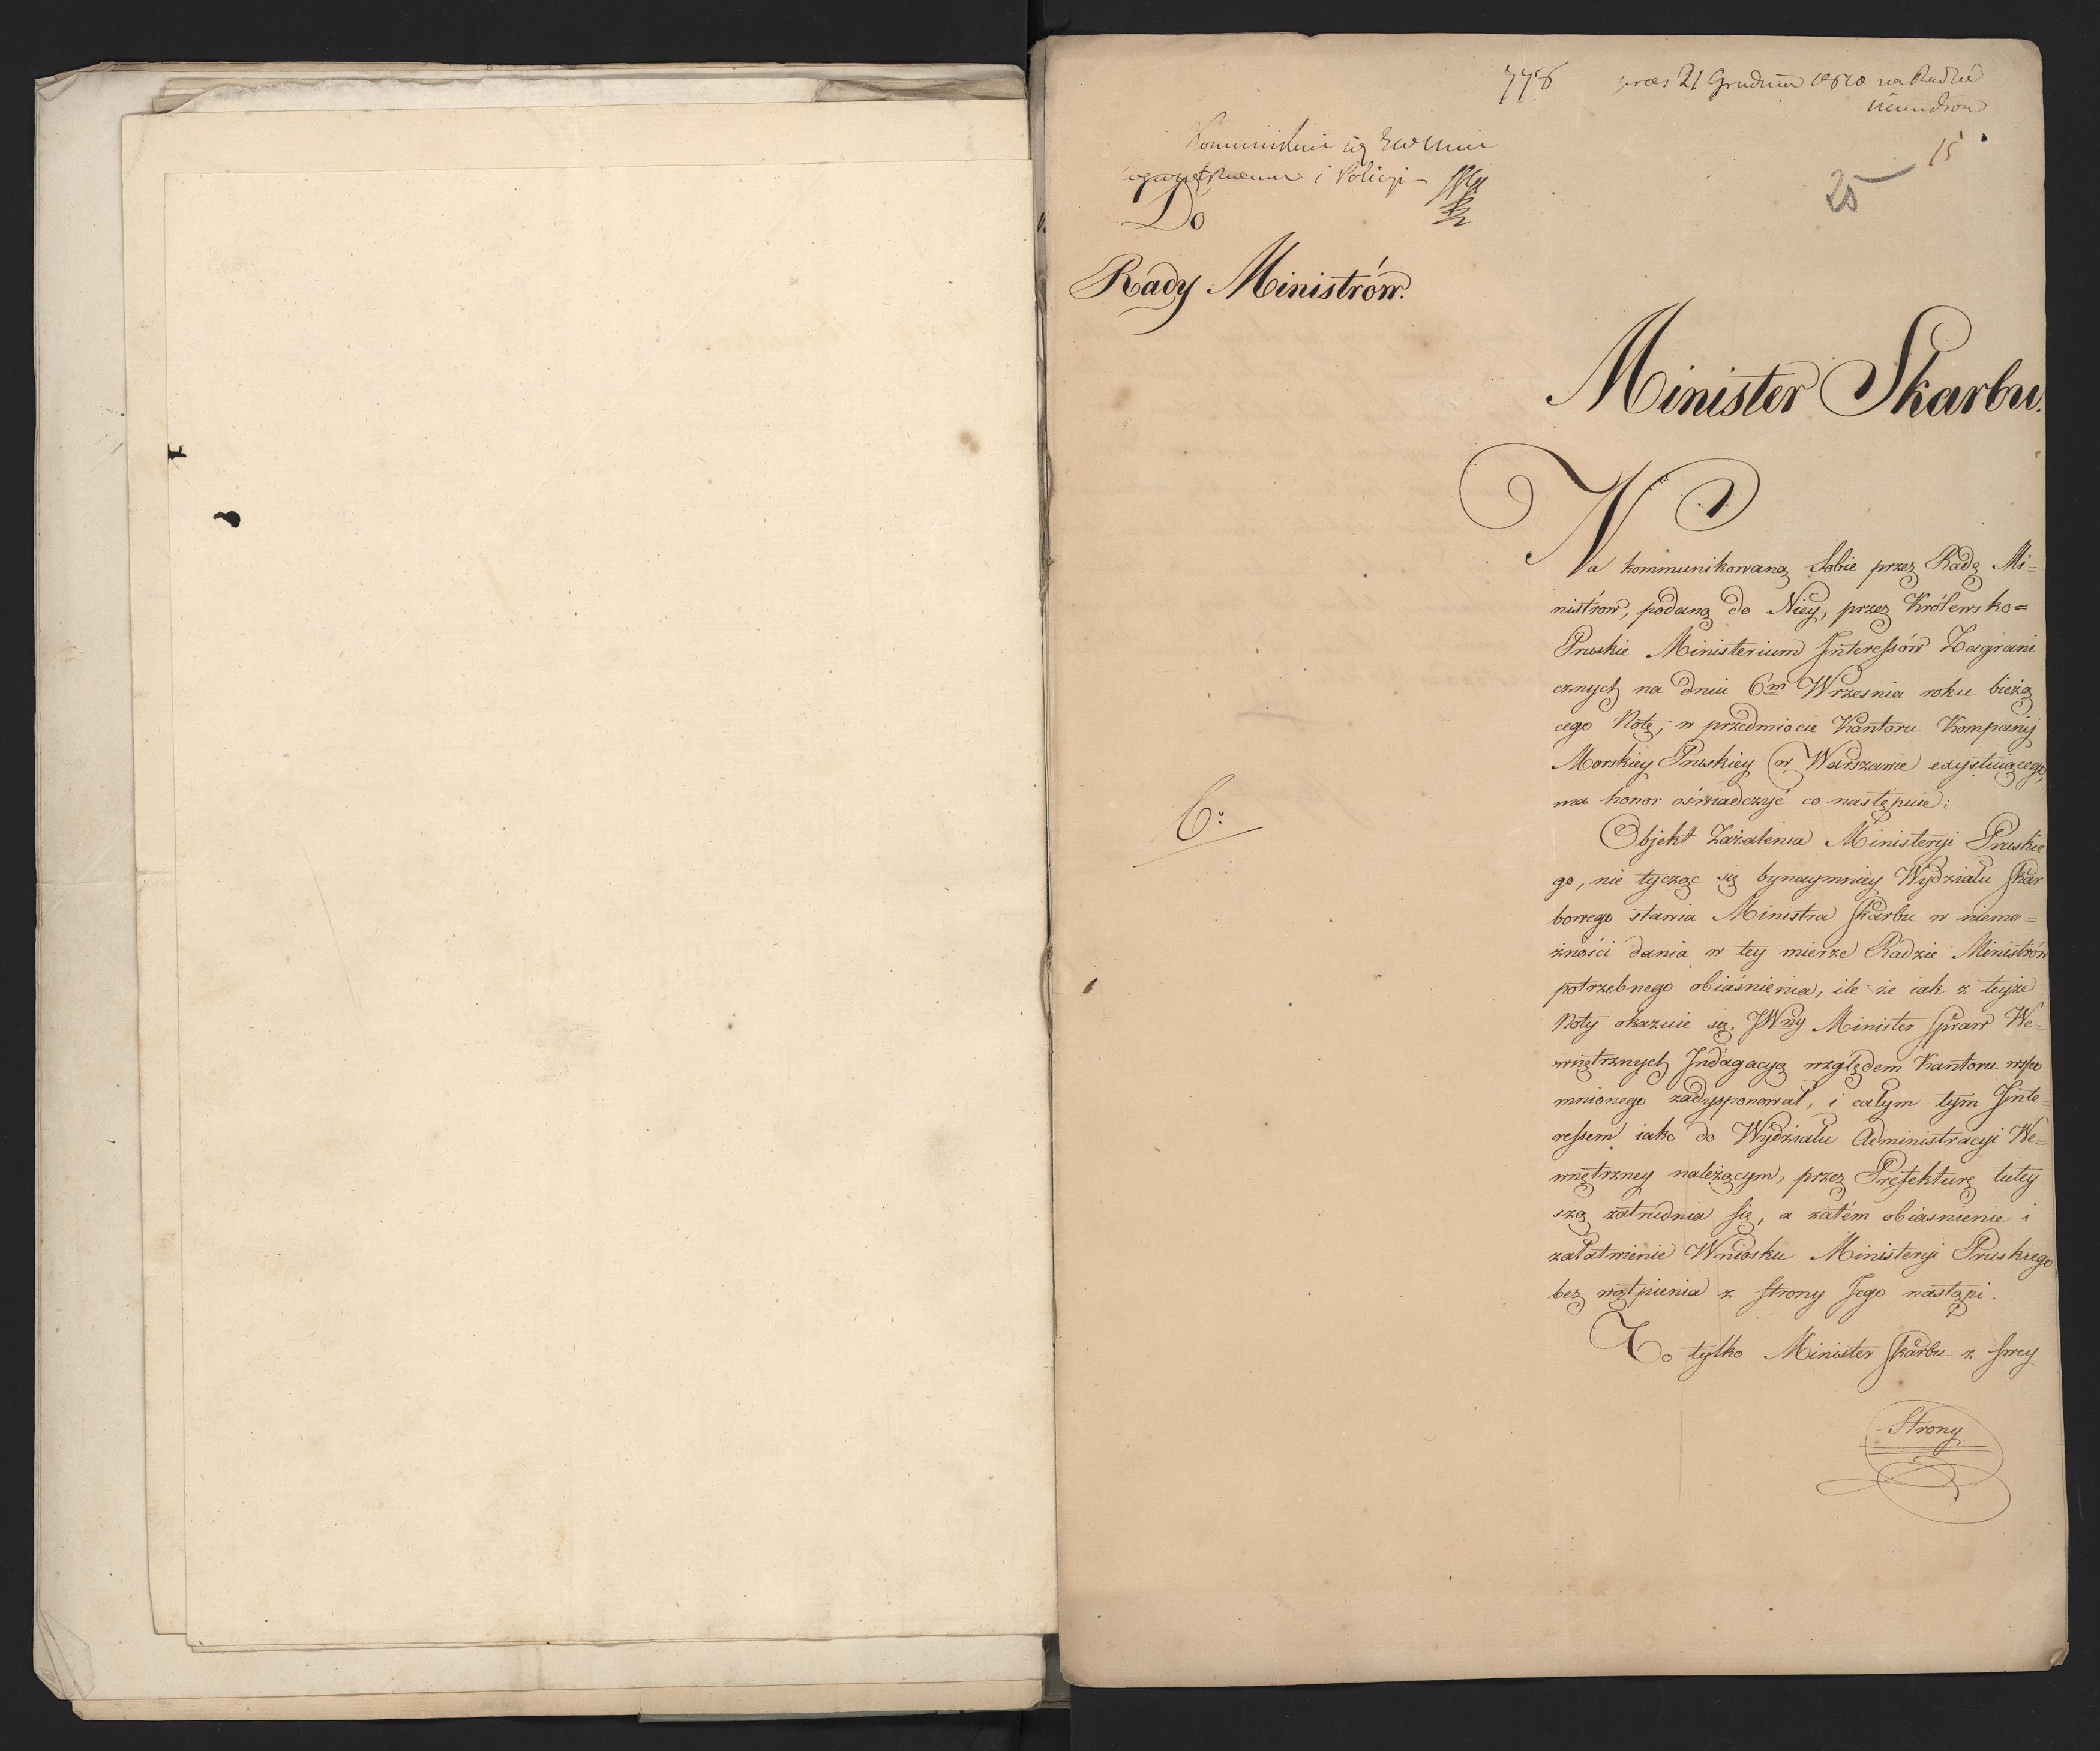 778 prez 21 Grudnia 1810 na Radzie
15
25
i Policyi
Do
Rady Ministrów.
Minister Skarbu.
Na kommunikowaną Sobie przez Radę Mi=
nistrow, podaną do Niey, przez Królewsko=
Pruskie Ministerium Interessów Zagrani
cznych na dniu 6m Wrzesnia roku bieżą
cego Notę, w przedmiocie Kantoru Kompanij
Morskiey Pruskiey w Warszawie exystuiącego,
ma honor oświadczyć co następuie:
6:
Objekt Zażalenia Ministeryi Pruskie
go, nie tycząc się bynaymniey Wydziału Skar
bowego stawia Ministra Skarbu w niemo=
żności dania w tey mierze Radzie Ministrów
potrzebnego obiaśnienia, ile że iak z teyże
Noty okazuie się, JWny Minister Spraw We=
wnętrznych Indagacyą względem Kantoru wspo
mnionego zadysponował, i całym tym Inte=
ressem iako do Wydziału Administracyi We=
wnętrzney należącym, przez Prefekturę tutey
szą zatrudnia się, a zatém obiasnienie i
załatwienie Wniosku Ministeryi Pruskiego
bez wątpienia z strony Jego nastąpi.
To tylko Minister Skarbu z swey
Strony